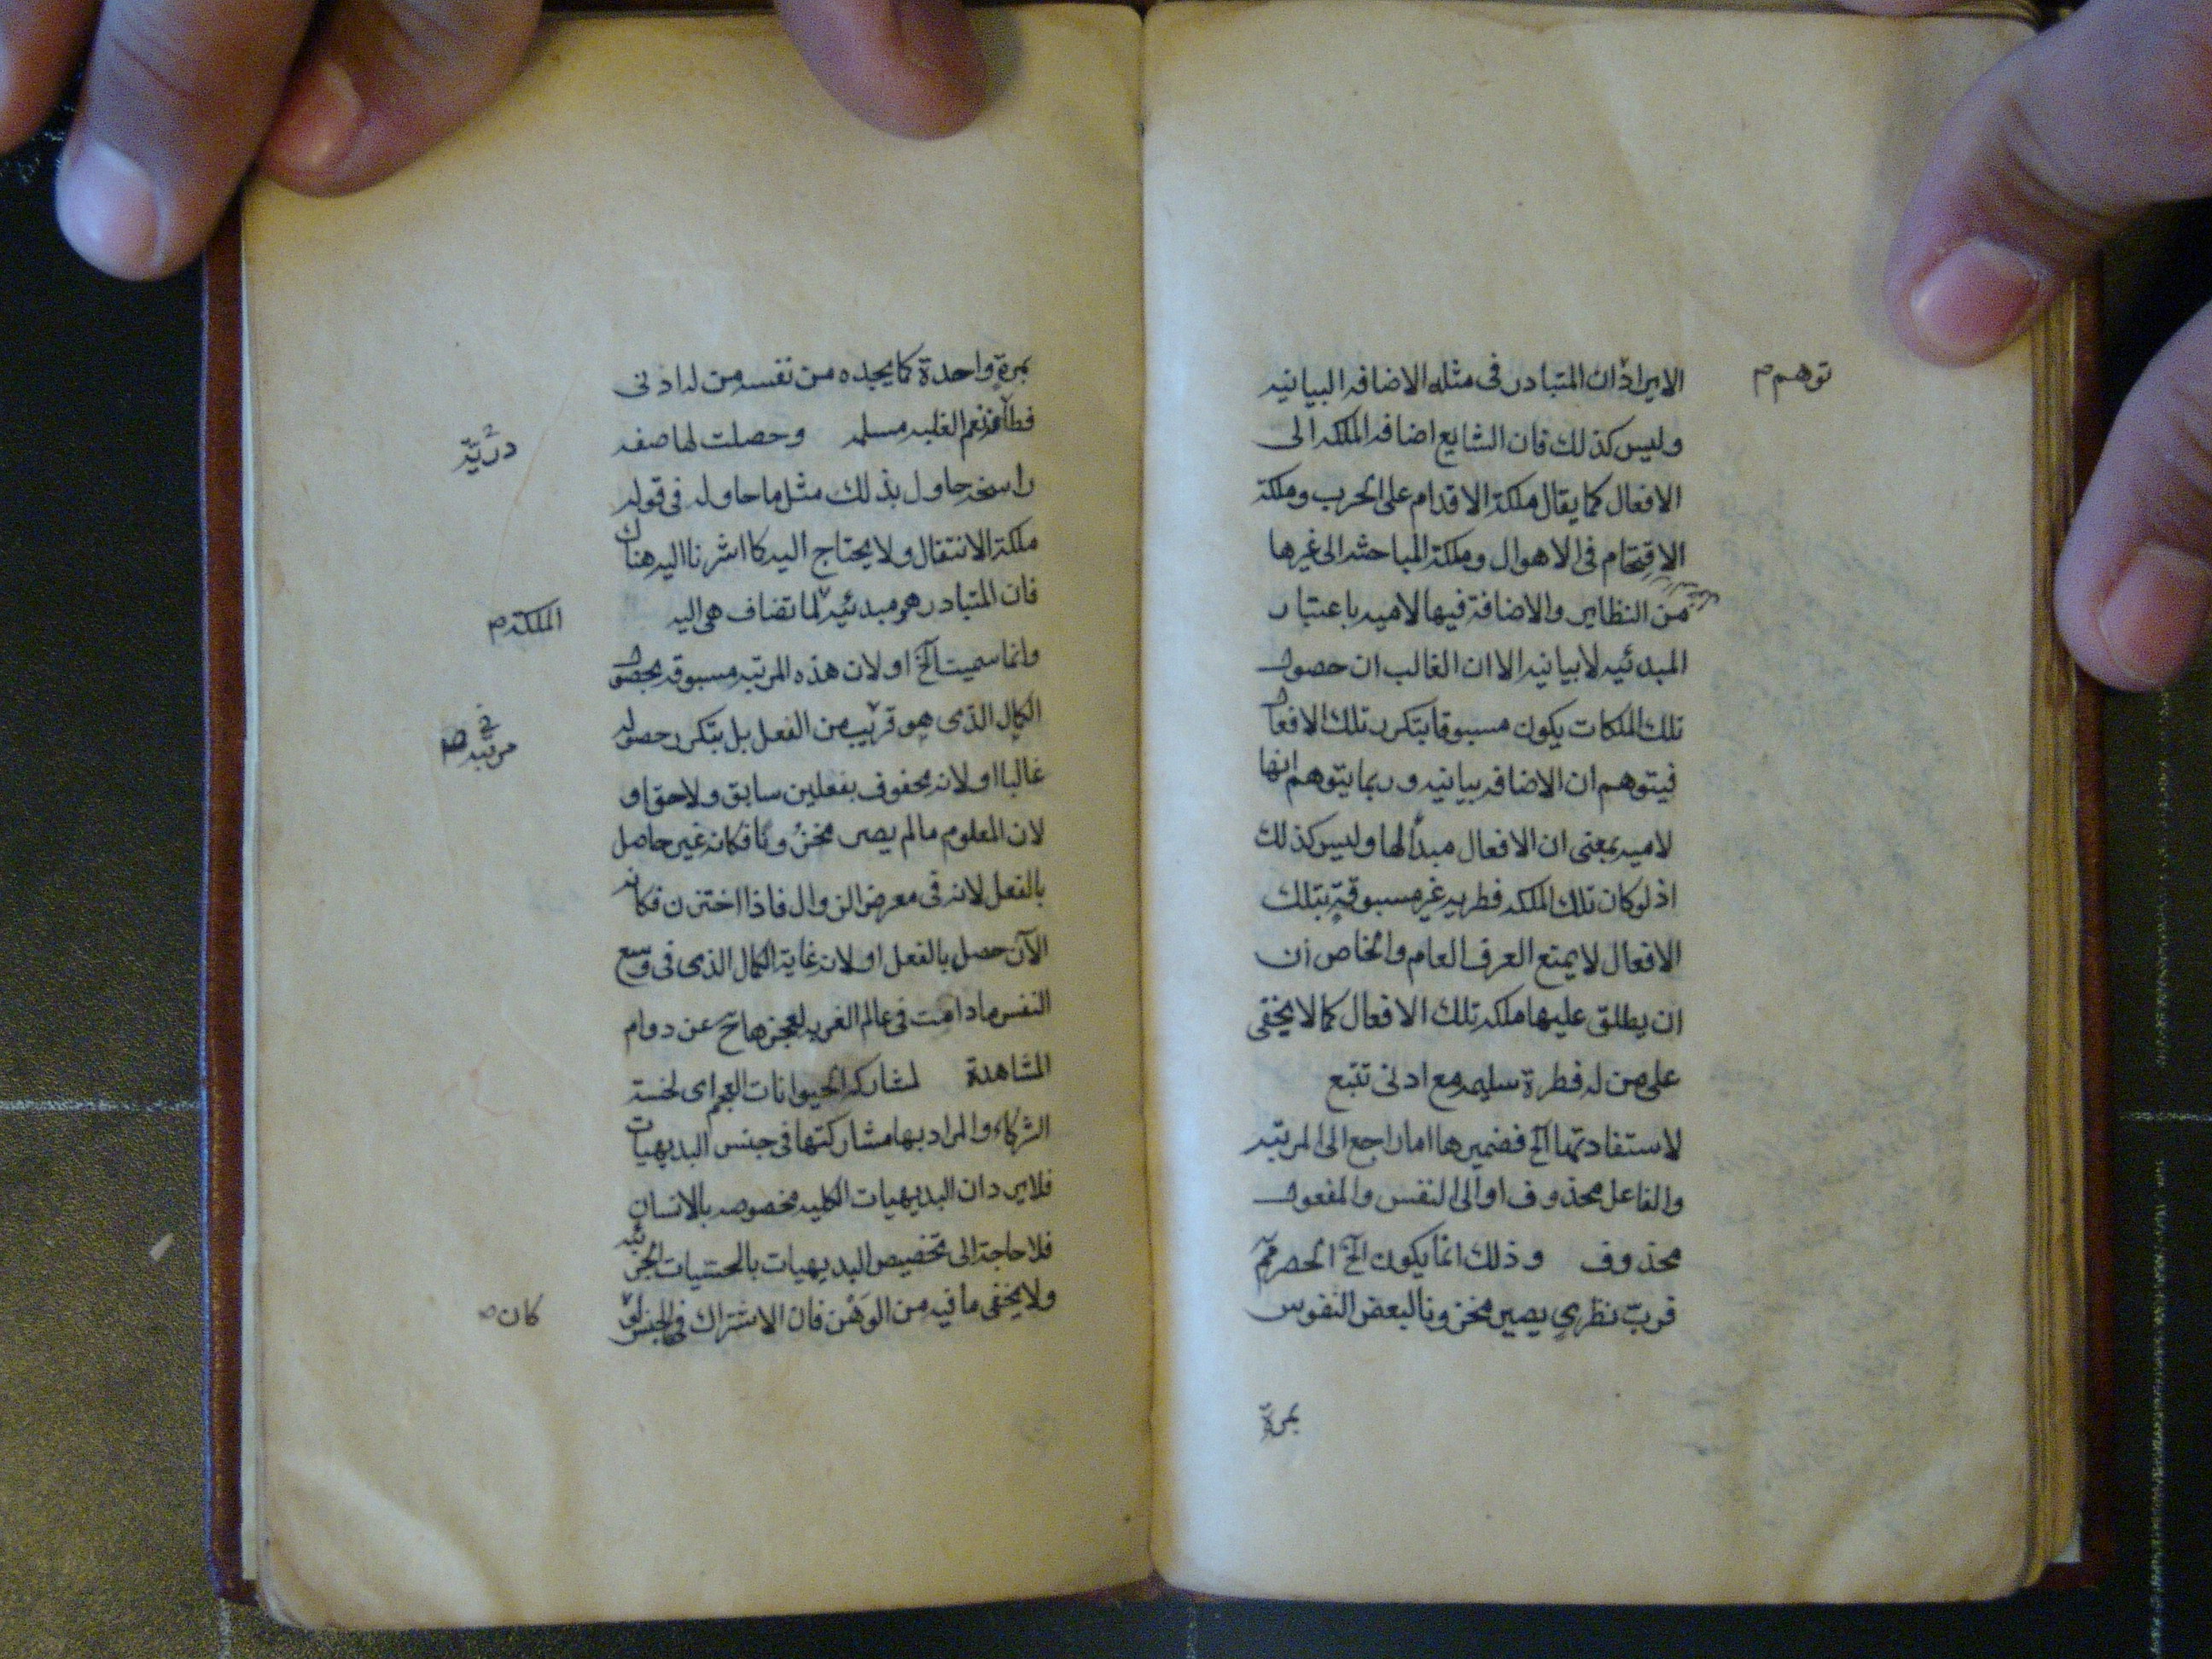 الايراد ان المتبادر فى مثله الاضافه البيانيه
توهم
وليس كذلك فان الشايع اضافه الملكه الى
الافعال كما يقال ملكة الاقدام على الحرب وملكة
الاقتحام فى الاهوال وملكة المباحثه الى غيرها
من النظاير والاضافة فيها لاميه باعتبار
المبدئيه لا بيانيه الا ان الغالب ان حصول
تلك الملكات يكون مسبوقا بتكرر تلك الافعال
فيتوهم ان الاضافه بيانيه وربما يتوهم انها
لاميه بمعنى ان الافعال مبدأ لها وليس كذلك
اذ لو كان تلك الملكه فطريه غير مسبوقة بتلك
الافعال لا يمتع العرف العام والخاص ان
ان يطلق عليها ملكه تلك الافعال كما لا يخفى
على من له فطرة سليمه مع ادنى تتبع
لاستفادتها الخ فضميرها اما راجع الى المرتبه
والفاعل محذوف او الى النفس والمفعول
محذوف وذلك انما يكون الخ الحصر مم
فرب نظري يصير مخزونا لبعض النفوس
بمرة
بمرة واحدة كما يجده من نفسه من له ادنى
فطانة نعم الغلبه مسلمه وحصلت لها صفه
دريّة
راسخه حاول بذلك مثل ما حاوله فى قوله
ملكة الانتقال ولا يحتاج اليه كما اشرنا اليه هناك
فان المتبادر هو مبدئية لما تضاف هى اليه
الملكة
وانما سميت الخ او لان هذه المرتبه مسبوقه بحصول
الكمال الذى هو قريب من الفعل بل بتكرر حصوله
فى مرتبه
غالبا او لانه محفوف بفعلين سابق ولاحق او
لان المعلوم ما لم يصر مخزونا فكانه غير حاصل
بالفعل لانه فى معرض الزوال فاذا اختزن فكانه
الآن حصل بالفعل او لانه غاية الكمال الذى فى وسع
النفس ما دامت فى عالم الغربه لعجزها ح عن دوام
المشاهدة لمشاركه الحيوانات العجم اى لخسة
الشركاء والمراد بها مشاركتها فى جنس البديهيات
فلا يرد ان البديهيات الكليه مخصوصه بالانسان
فلا حاجة الى تخصيص البديهيات بالحسيات الجزئيه
ولا يخفى ما فيه من الوهن فان الاشتراك فى الجنس لو
كان